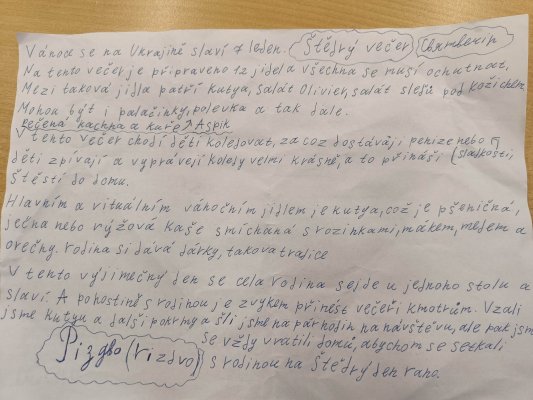 Vánoce se na Ukrajině slaví 7 leden. Štědrý večer
Na tento večer je připraveno 12 jídel a všechna se musí ochutnat,
Mezi taková jídla patří kutya, salát Olivier, salát sleď pod kožichem,
Mohou být i palačinky, polevka a tak dále.
pečená kachna a kuře, Aspik
V tento večer chodí děti koledovat, za což dostávají peníze nebo
děti zpívají a vyprávějí koledy velmi krásně, a to přináší (sladkosti,
štěstí do domu.
Hlavním a rituálním vánočním jídlem je kutya, což je pšeničná,
ječna nebo rýžová kaše smíchaná s rozinkami, mákem, medem a
orechy. rodina si dává dárky, takova tradice
V tento výjimečný den se cela rodina sejde u jednoho stolu a
slaví. A pohostině s rodinou je zvykem přinést večeři kmotrům. Vzali
jsme kutyu a další pokrmy a šli jsme na pár hodin na návštěvu, ale pak jsme
se vždy vrátili domů, abychom se setkali
Різдво (rizdvo) s rodinou na Štědrý den rano.